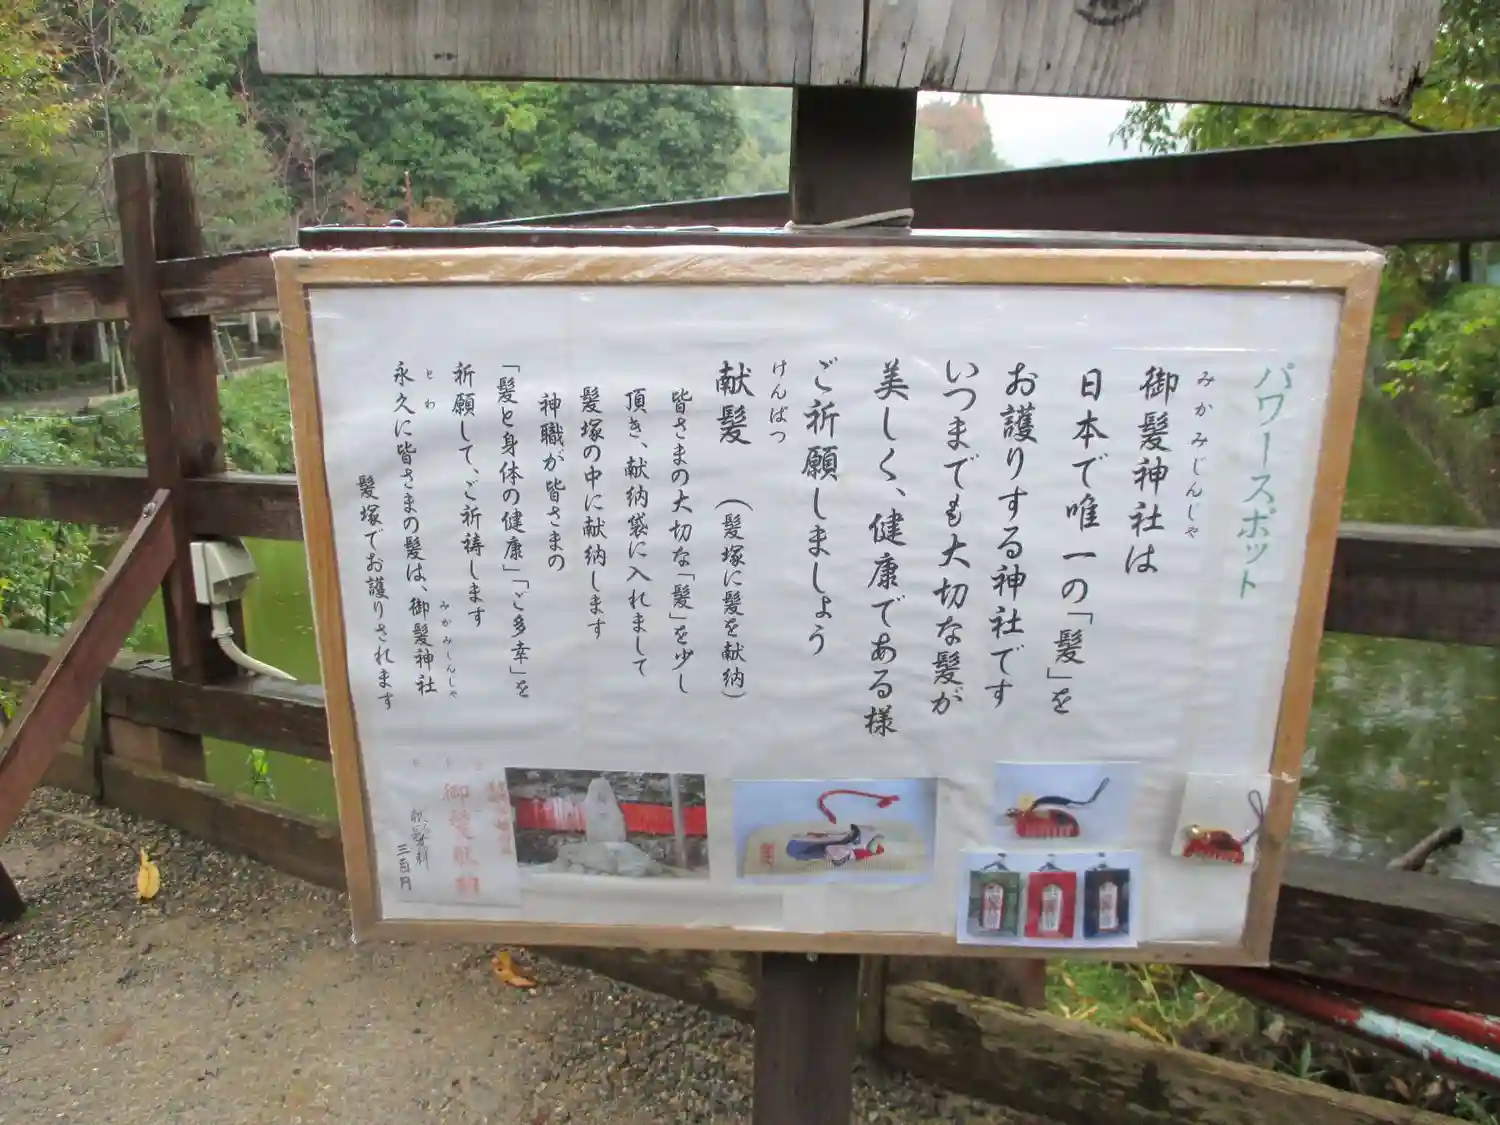 パワースポット
みかみじんじゃ
御髪神社は
日本で唯一の「髪」を
お護りする神社です
いつまでも大切な髪が
美しく、健康である様
ご祈願しましょう
けんぱつ
献髪 （髪塚に髪を献納）
皆さまの大切な「髪」を少し
頂き、献納袋に入れまして
髪塚の中に献納します
神職が皆さまの
「髪と身体の健康」「ご多幸」を
祈願して、ご祈祷します
とわ
みかみじんじゃ
永久に皆さまの髪は、御髪神社
髪塚でお護りされます
御髪献納
献髪料
三百円